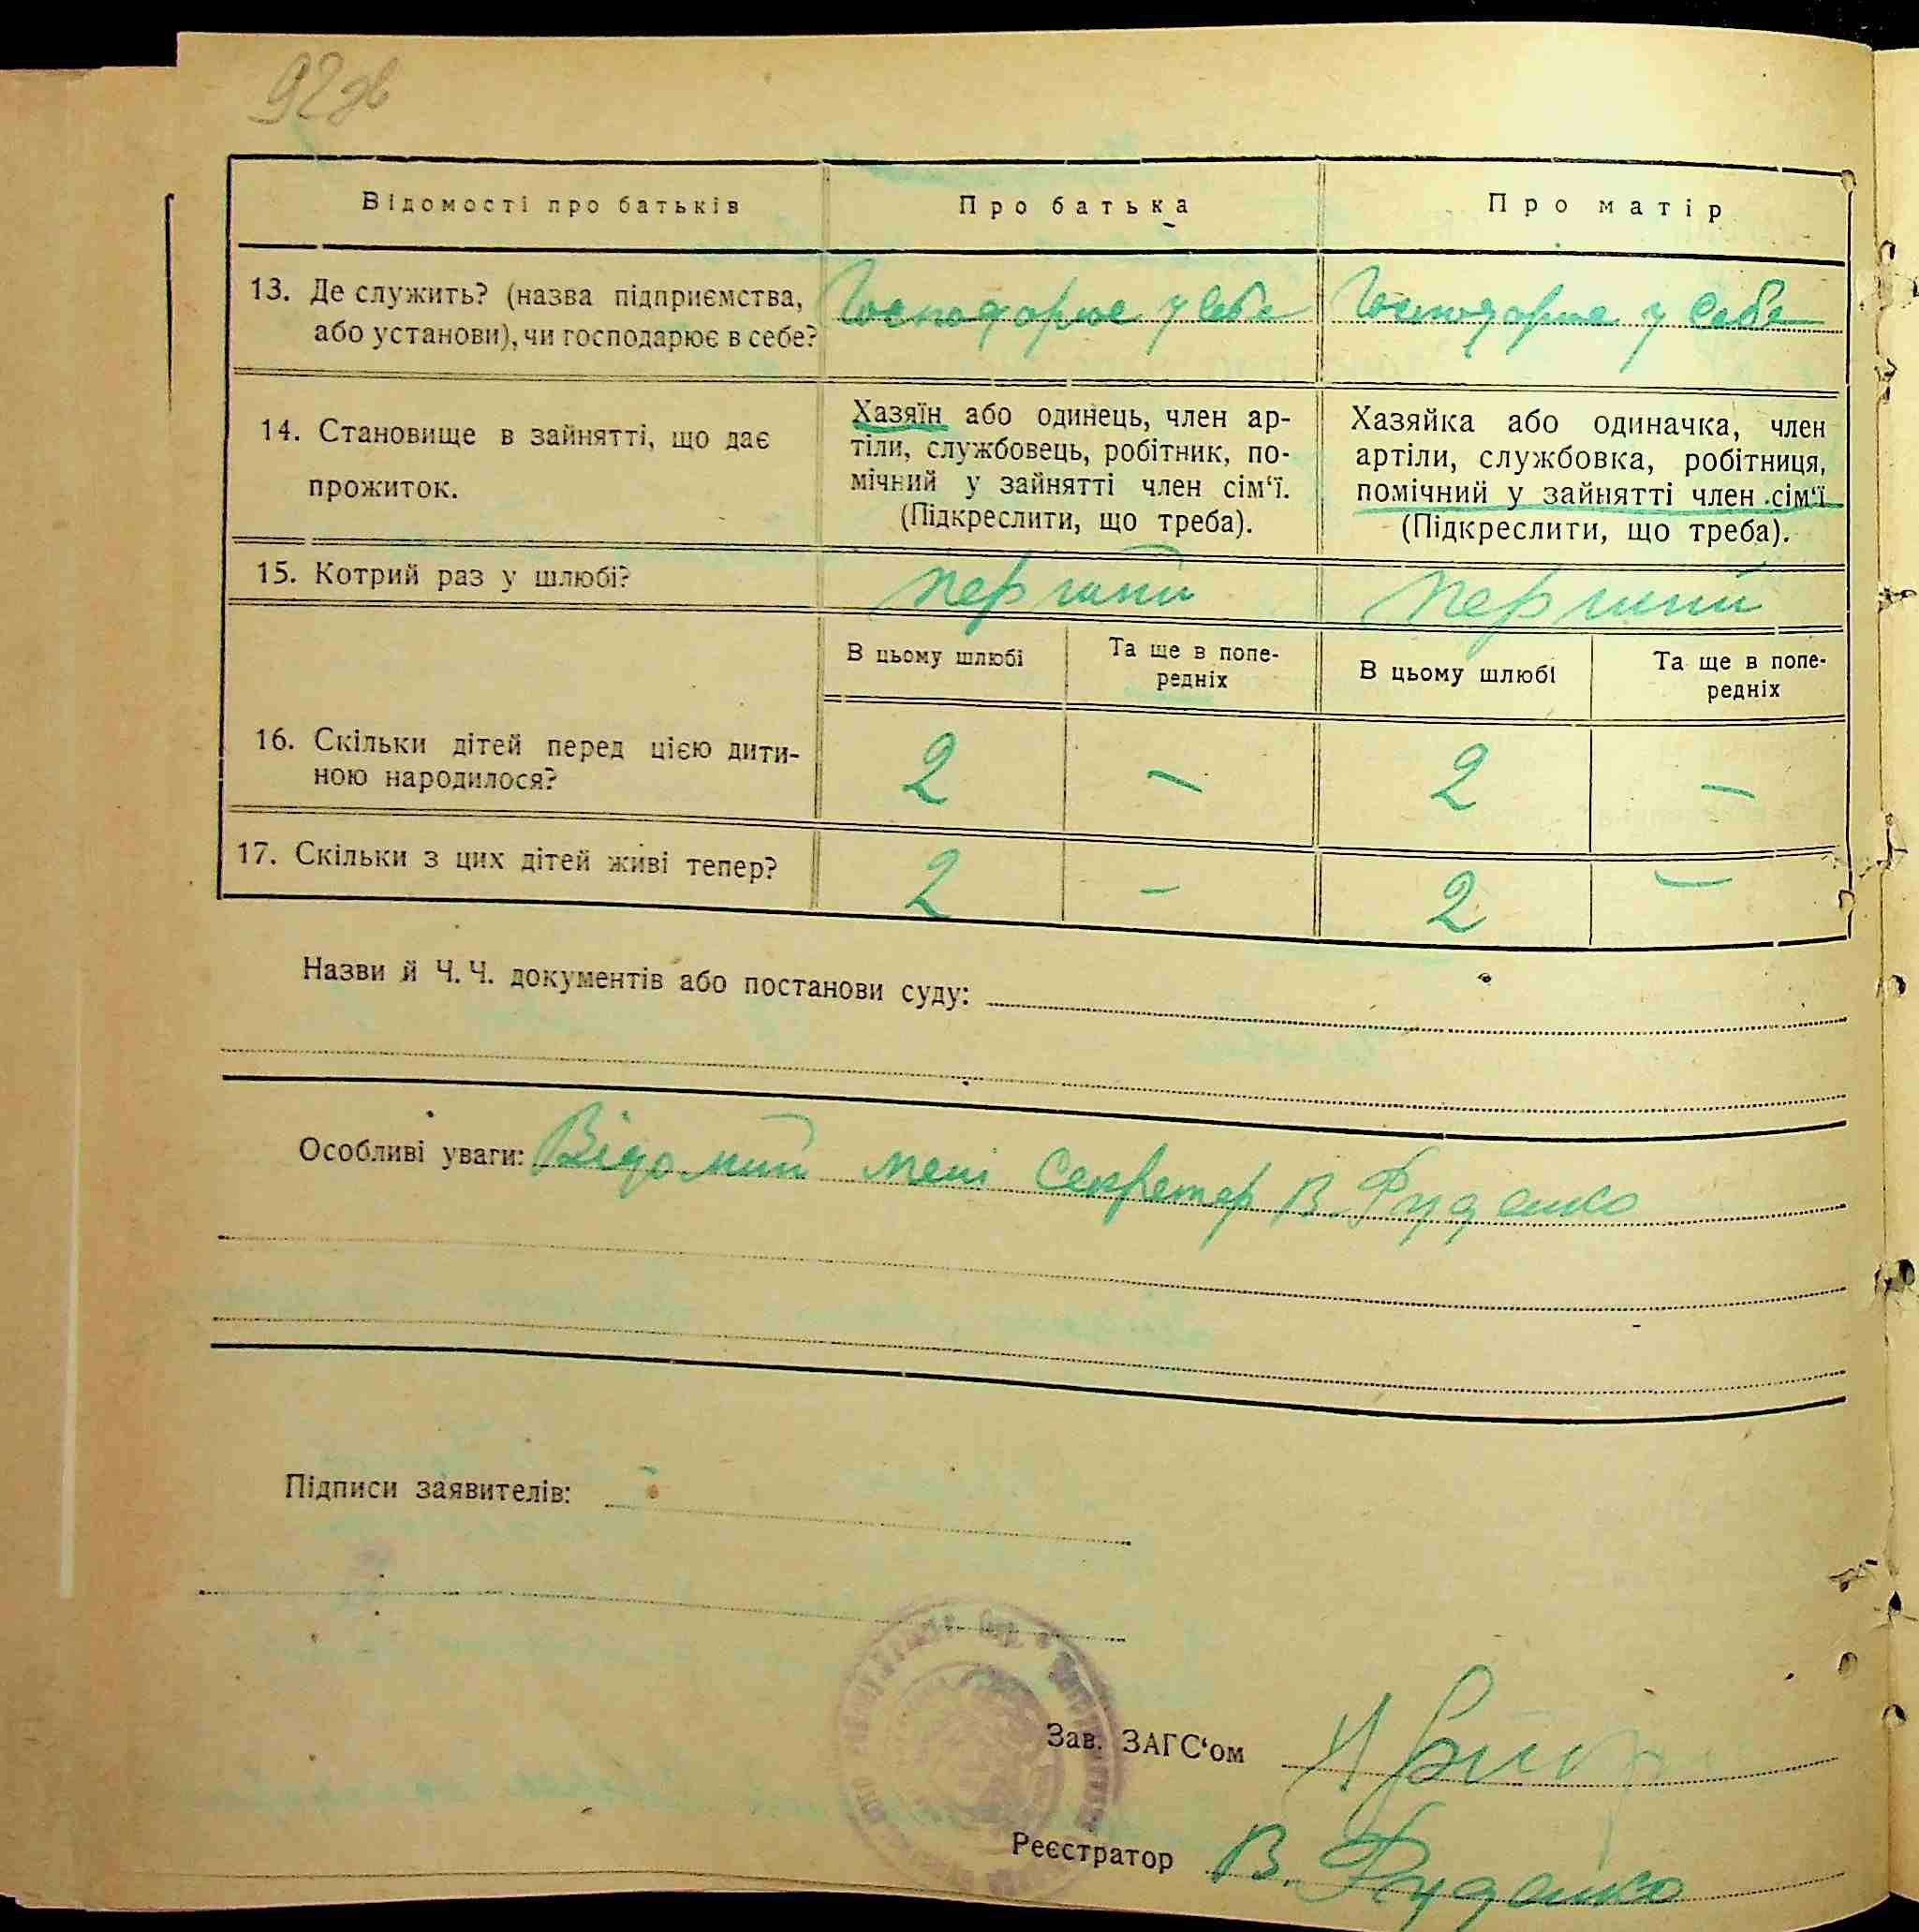 92зв
Відомості про батьків Про батька Про матір
13. Де служить? (назва підприємства, або установи), чи господарює в себе?
Господорює у себе
Господорює у себе
14. Становище в зайнятті, що дає
прожиток.
Хазяїн або одинець, член ар-
тіли, службовець, робітник, по-
мічний у зайнятті член сім‘ї.
(Підкреслити, що треба).
Хазяйка або одиначка, член
артіли, службовка, робітниця,
помічний у зайнятті член сім‘ї
(Підкреслити, що треба).
15. Котрий раз у шлюбі? перший перший
В цьому шлюбі
Та ще в попе-
редніх
В цьому шлюбі
Та ще в попе-
редніх
16. Скільки дітей перед цією дити-
ною народилося?
2 — 2 —
17. Скільки з цих дітей живі тепер? 2 — 2 —
Назви й Ч. Ч. документів або постанови суду:
Особливі уваги: Відомий мені Секретар В. Руденко
Підписи заявителів:
Зав. ЗАГС‘ом
Реєстратор В. Руденко